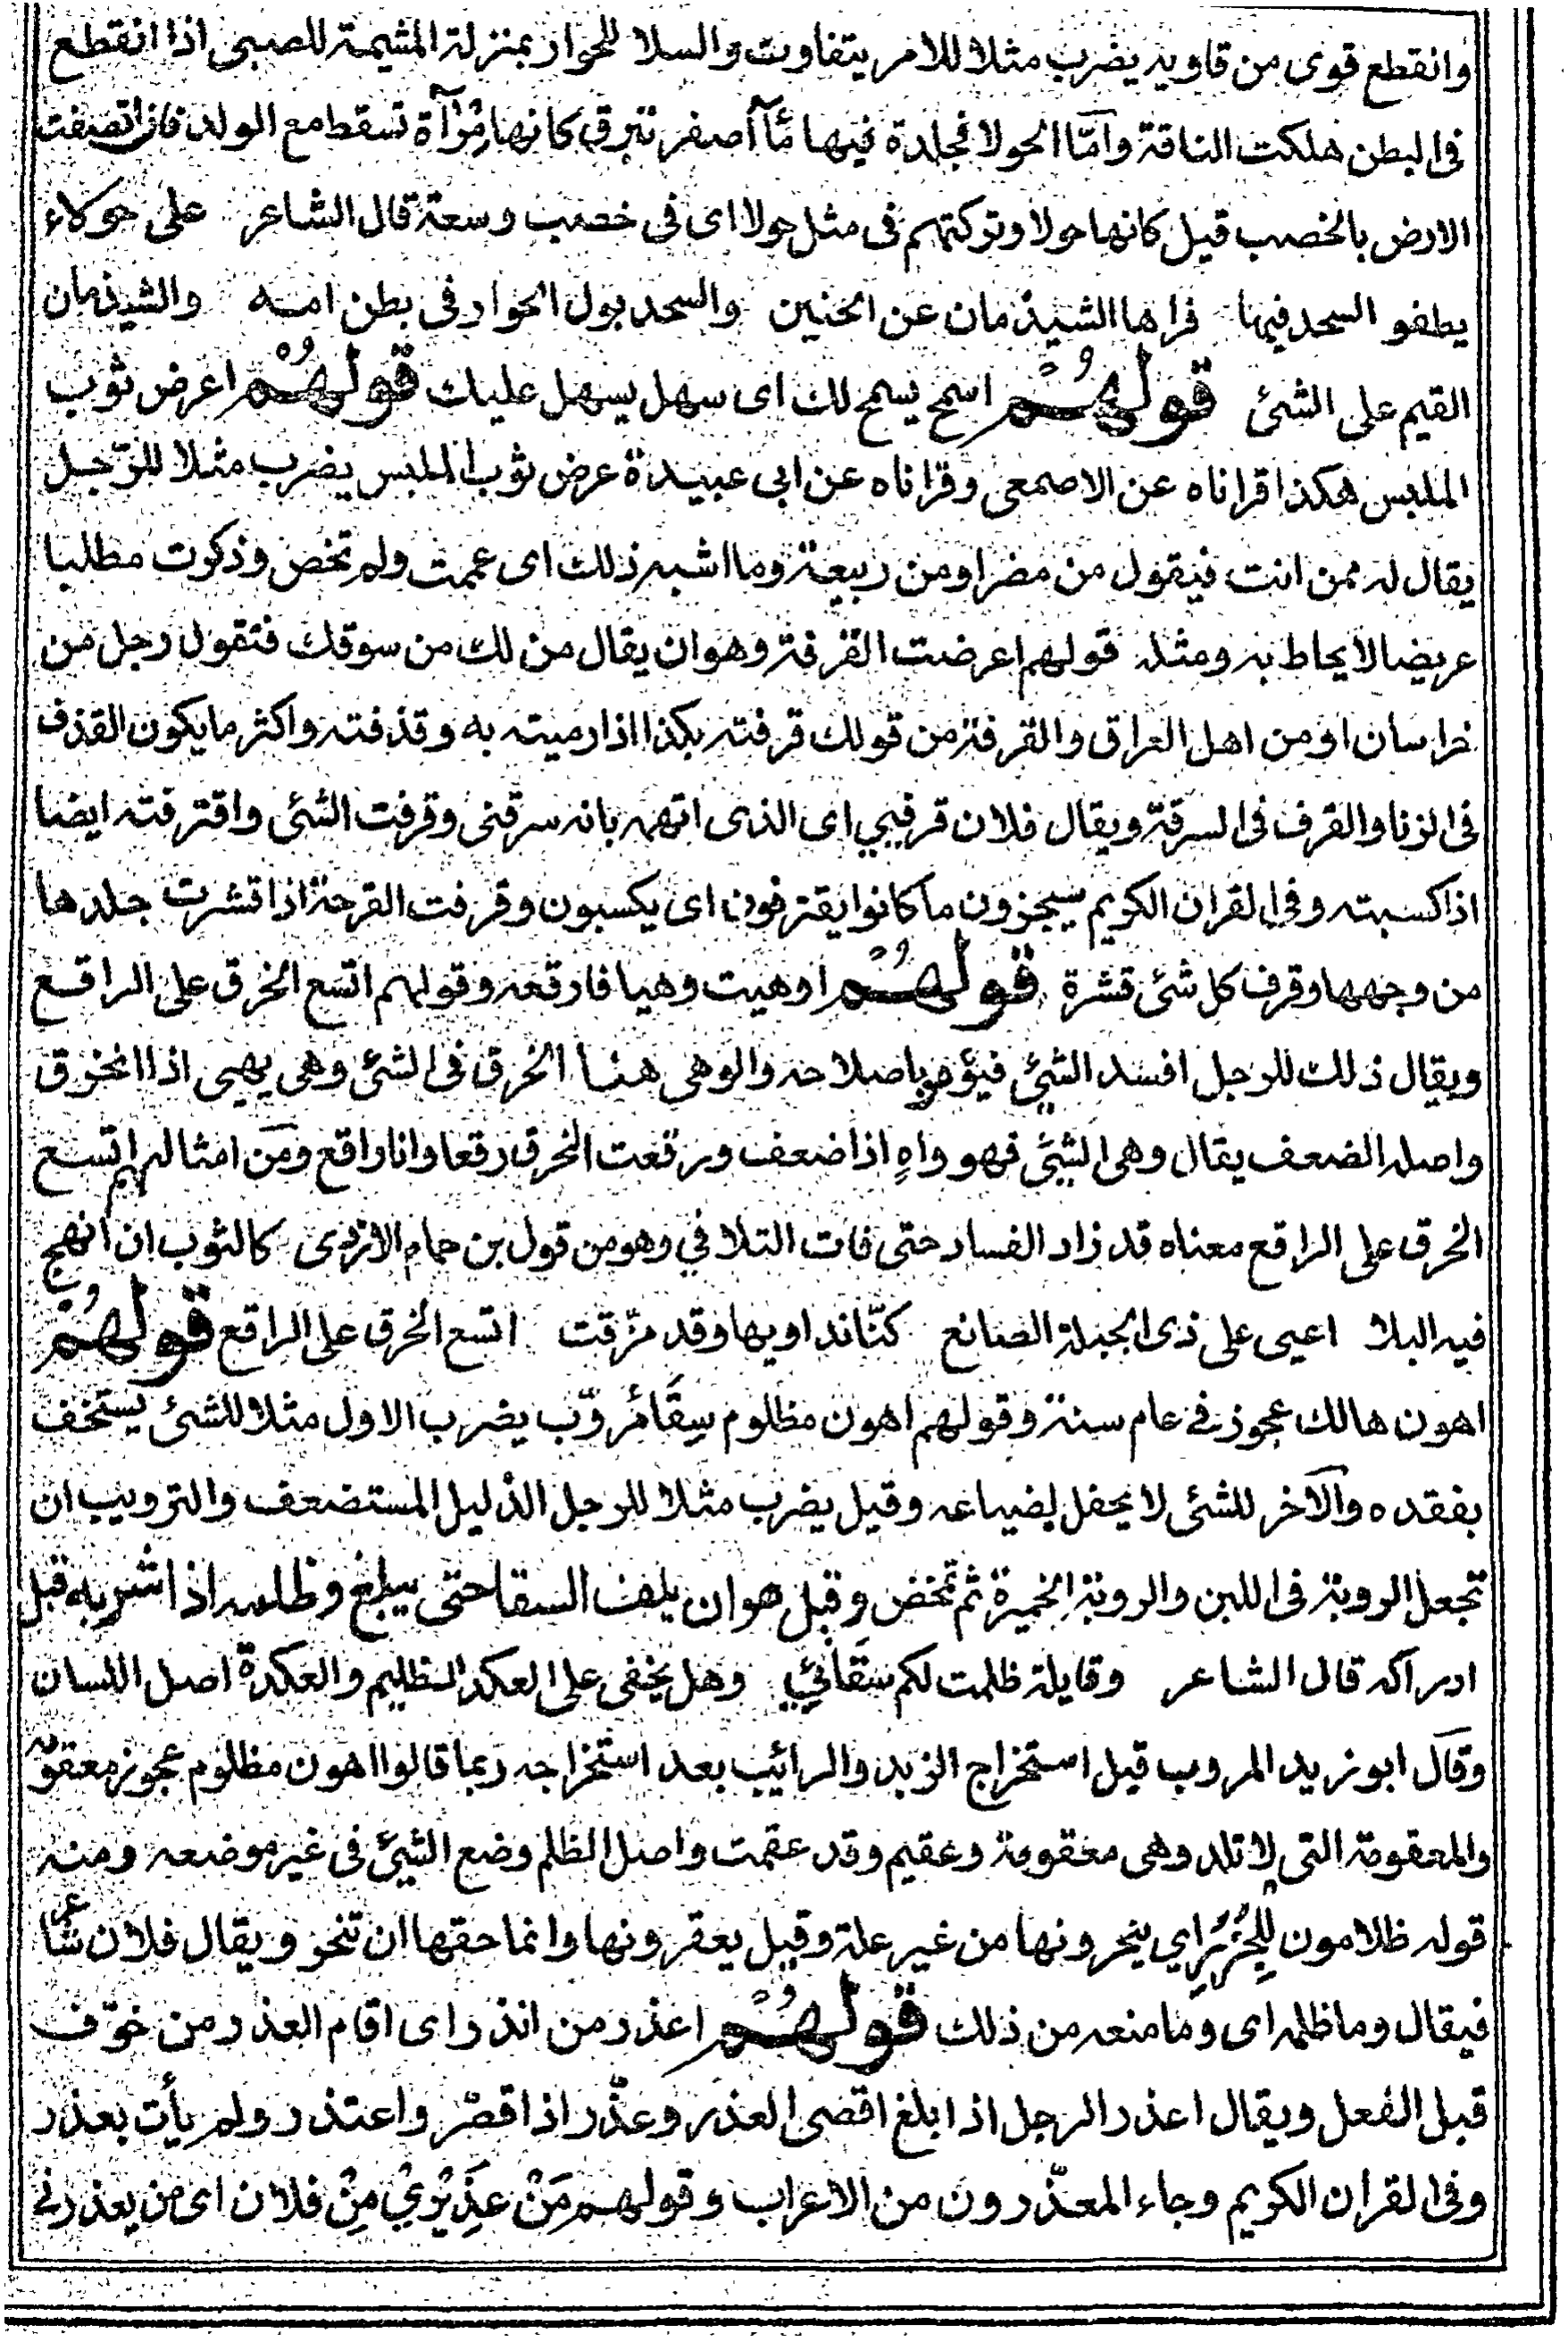 وانقطع قوى من قاويه يضرب مثلا للامر يتفاوت والسلا للحوار بمنزلة المشيمة للصبى اذا انقطع
فى البطن هلكت الناقة وامّا الحولا فجلدة فيها مآأ اصفر تبرق كانها مرآة تسقط مع الولد فاذا تصفت
الارض بالخصب قيل كانها حولا وتركتهم فى مثل حولا اى فى خصب وسعة قال الشاعر على حوكاء
يطفو السحد فيها فراها الشيذمان عن الحنين والسحد بول الحوار فى بطن امه والشيذمان
القيم على الشئ قولهُم اسمح يسمح لك اى سهل يسهل عليك قولهُم اعرض ثوب
الملبس هكذا قراناه عن الاصمعى وقراناه عن ابى عبيدة عرض ثوب الملبس يضرب مثلا للرّجل
يقال له ممن انت فيقول من مضر اومن ربيعة وما اشبه ذلك اى عممت ولم تخص وذكرت مطلبا
عريضا لا يحاط به ومثله قولهم اعرضت القرفة وهوان يقال من لك من سوقك فتقول رجل من
خراسان اومن اهل العراق والقرفة من قولك قرفته بكذا اذا رميته به وقذفته واكثر ما يكون القذف
فى الزنا والقرف فى السرقة ويقال فلان قرفيي اى الذى اتهمه بانه سرقنى وقرفت الشئى واقترفته ايضا
اذا كسبته وفى القران الكريم سيجزون ما كانوا يقترفون اى يكسبون وقرفت القرحة اذا قشرت جلدها
من وجهها وقرف كل شئ قشرة قولهُم اوهيت وهيا فارقعه وقولهم اتسع الخرق على الراقع
ويقال ذلك للرجل افسد الشئ فيؤمر باصلاحه والوهى هنا الخرق فى الشئ وهى يهيى اذا انخرق
واصله الضعف يقال وهى الشئ فهو واهٍ اذا ضعف ورقعت الخرق رقعا وانا راقع ومن امثالهم اتسع
الخرق على الراقع معناه قد زاد الفساد حتى فات التلافي وهو من قول بن حمام الازدى كالثوب ان انهج
فيه البلا اعيى على ذى الحيلة الصانع كنّا نداويها وقد مزّقت اتسع الخرق على الراقع قولهُم
اهون هالك عجوز فى عام سنة وقولهم اهون مظلوم سِقَاءٌ مُروّب يضرب الاول مثلا للشئ يستخف
بفقده والآخر للشئى لا يحفل لضياعه وقيل يضرب مثلا للرجل الذليل المستضعف والترويب ان
تجعل الروبة فى اللبن والروبة الخميرة ثم تمخض وقيل هو ان يلف السقا حتى يبلغ وظلمه اذا شربه قبل
ادراكه قال الشاعر وقايلة ظلمت لكم سَقَائِي وهل يخفى على العكد الظليم والعكدة اصل اللسان
وقال ابو زيد المروب قبل استخراج الزبد والرائيب بعد استخراجه ربما قالوا اهون مظلوم عجوز معقومة
والمعقومة التى لا تلد وهى معقومة وعقيم وقد عقمت واصل الظلم وضع الشئ فى غير موضعه ومنه
قوله ظلامون لِلجُزُرِ اي ينحرونها من غير علة وقيل يعقرونها وانما حقها ان تنحر ويقال فلان شاعر
فيقال وما ظلمه اى وما منعه من ذلك قولهُم اعذر من انذر اى اقام العذر من خوّف
قبل الفعل ويقال اعذر الرجل اذا بلغ اقصى العذر وعذّر اذا قصّر واعتذر ولم يأت بعذر
وفى القران الكريم وجاء المعذّرون من الاعراب وقولهم مَنْ عَذِيْرِيْ مِنْ فلان اى من يعذرنى